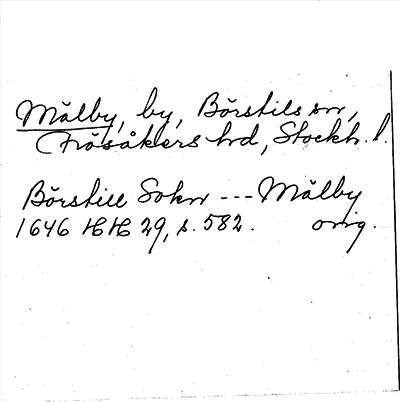 Målby, by, Börstils sn,
Frösåkers hd, Stockh. l.
Börstill Sokn --- Målby
1646 HH 29, s. 582. orig.